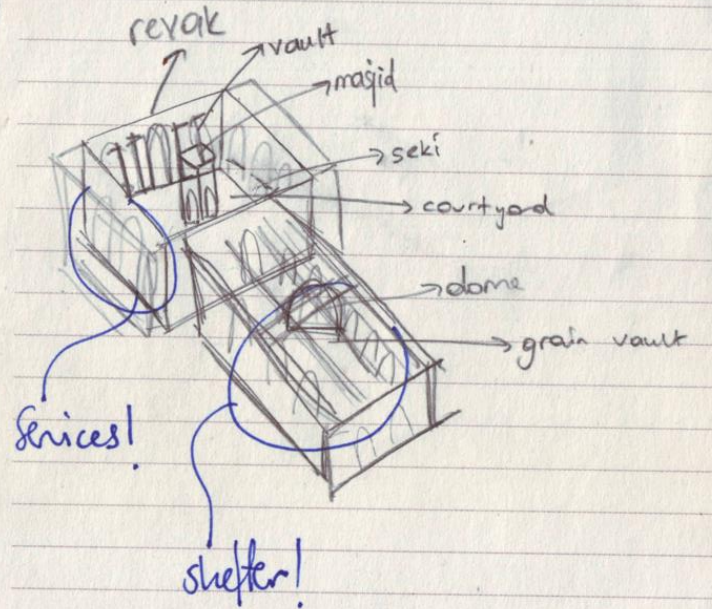 revak
vault
masjid
seki
courtyard
dome
grain vault
Services!
shelter!